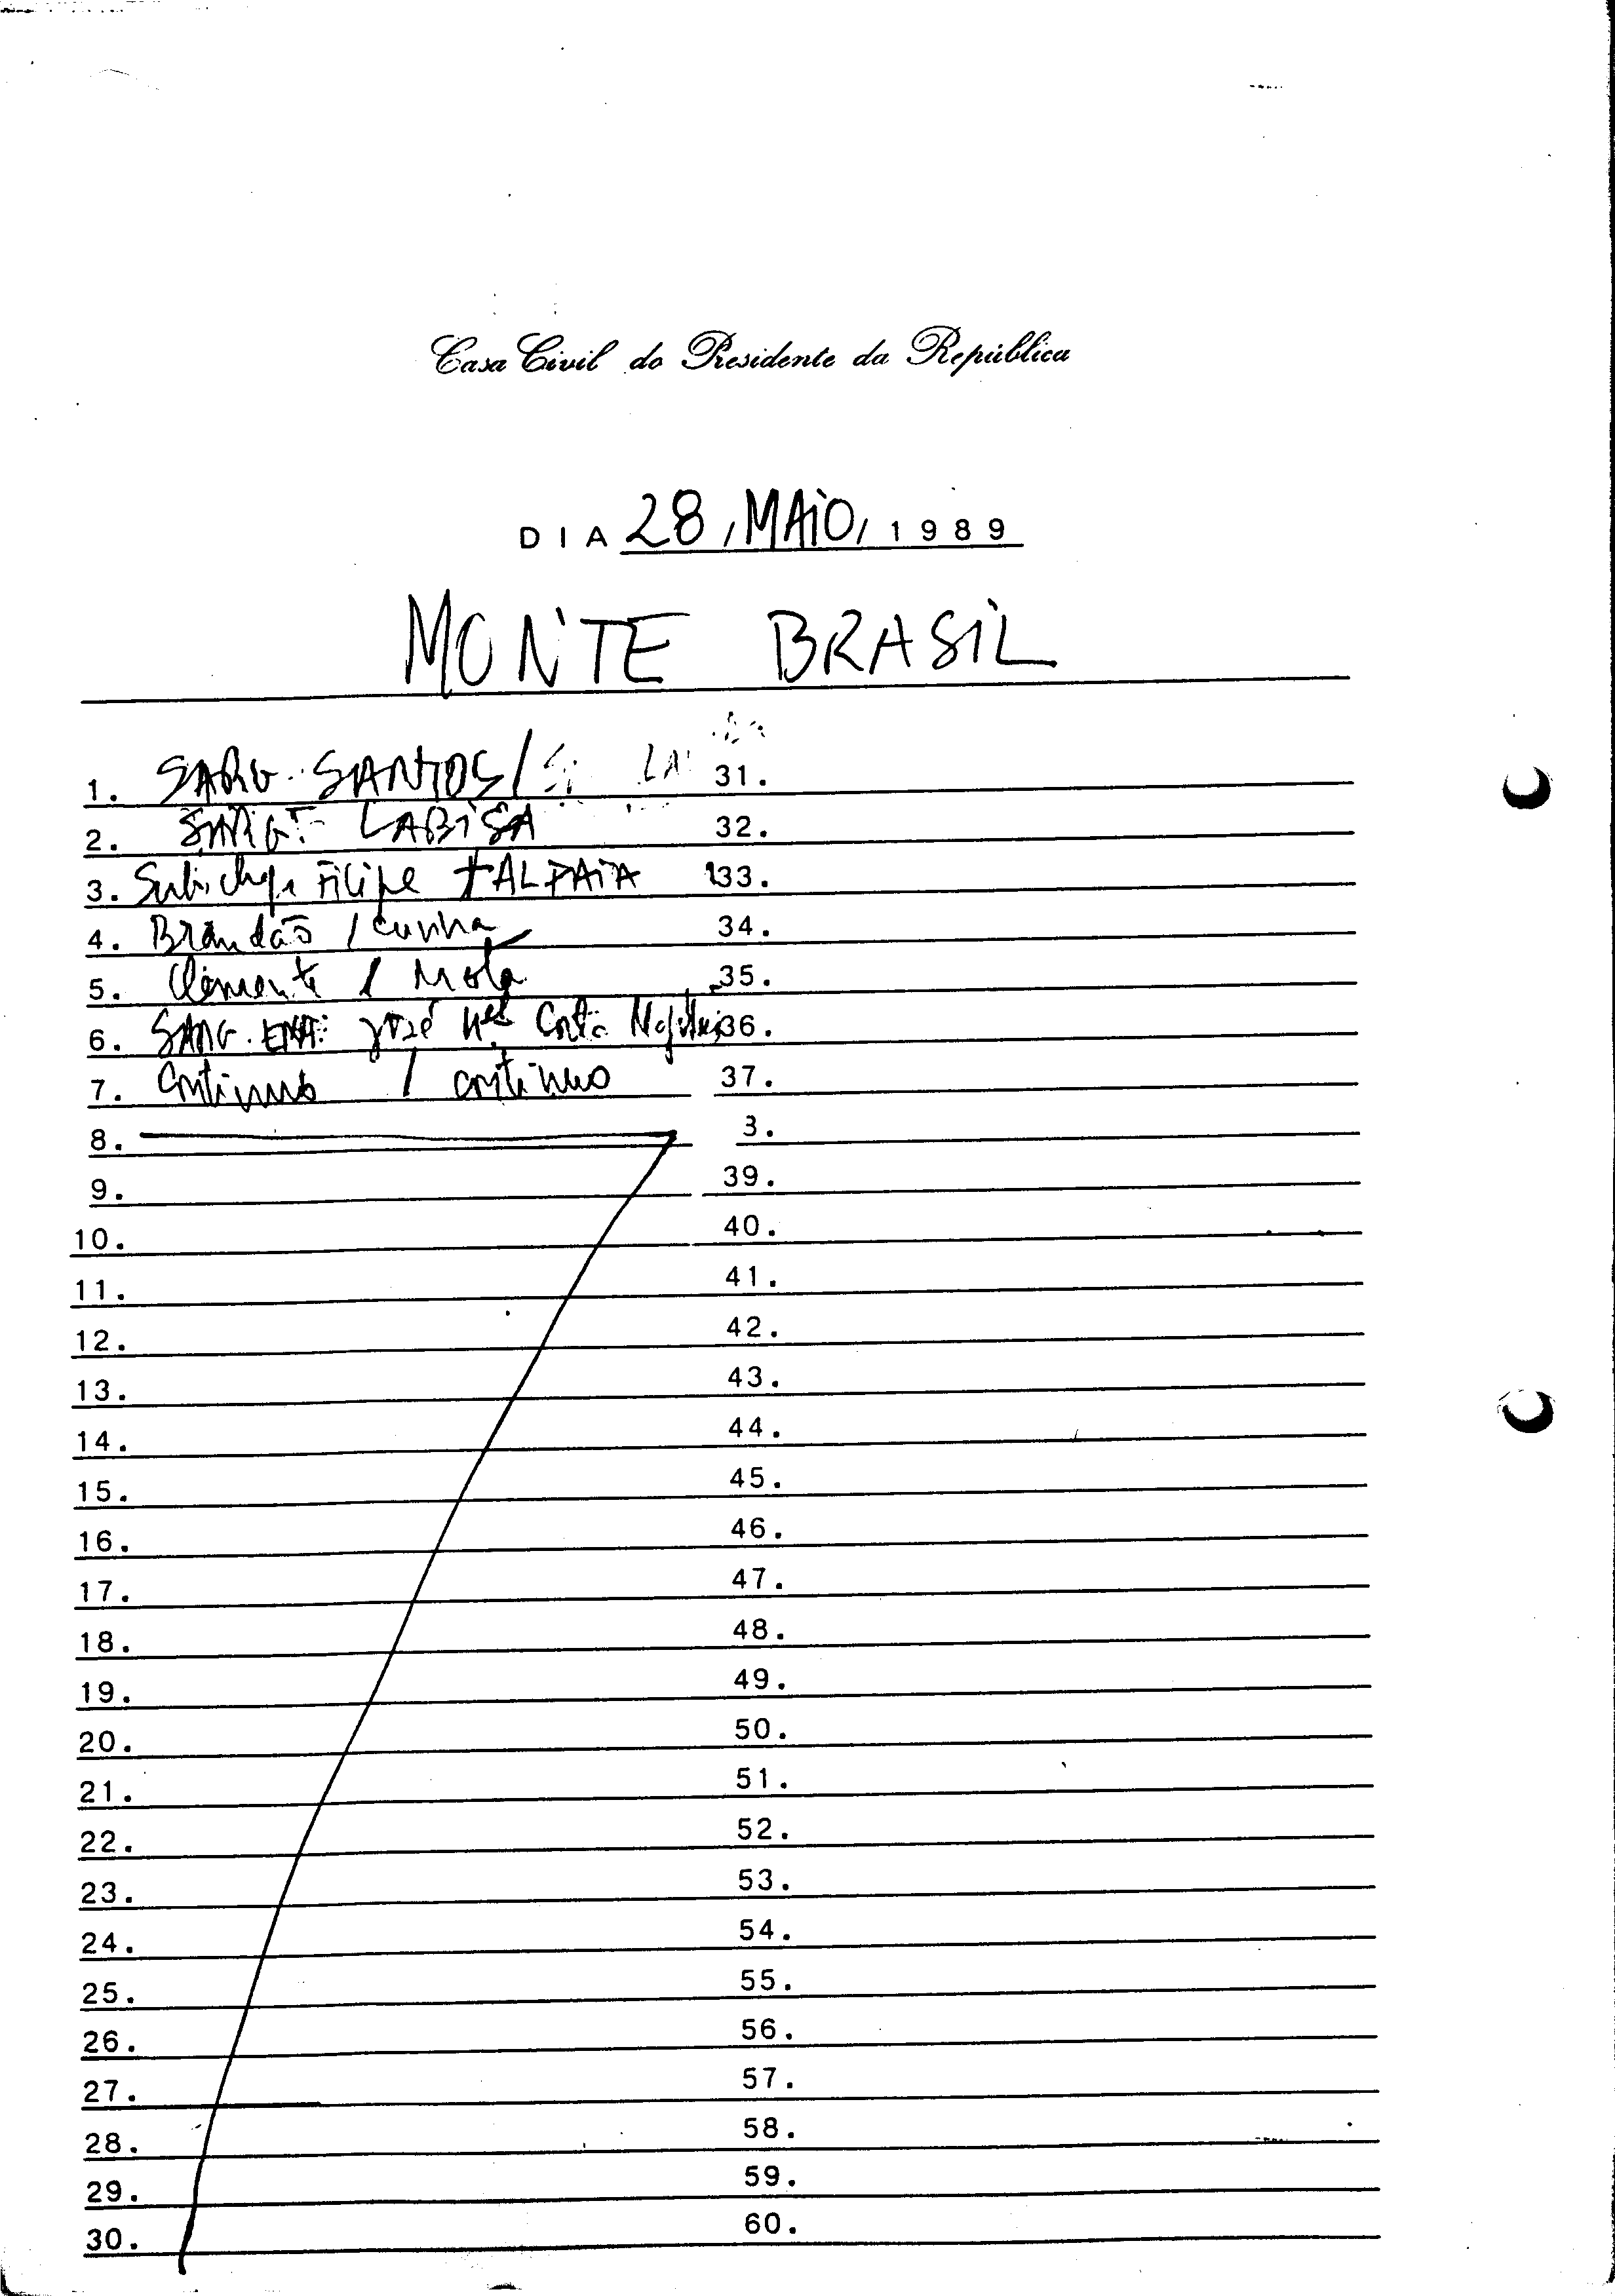 Casa Civil do Presidente da República
DIA 28, MAIO, 1989
MONTE BRASIL
1. SARG. SANTOS /
2. SARGT. LABISA
3. Filipe + ALPAIA
4. Brandão / Cunha
5. Clemente / Mota
6. SARG. José Costa
7. Contínuo / contínuo
8.
9.
10.
11.
12.
13.
14.
15.
16.
17.
18.
19.
20.
21.
22.
23.
24.
25.
26.
27.
28.
29.
30.
31.
32.
33.
34.
35.
36.
37.
3.
39.
40.
41.
42.
43.
44.
45.
46.
47.
48.
49.
50.
51.
52.
53.
54.
55.
56.
57.
58.
59.
60.